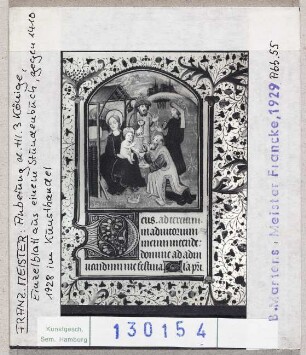 FRANZ. MEISTER: Anbetung d. Hl. 3 Könige,
Einzelblatt aus einem Stundenbuch, gegen 1410
1928 im Kunsthandel
Deus, ad
in adiutorium
meum intende
domine ad adiu
uandum me festina
B. Martens: Meister Francke, 1929
Abb. 55
Kunstgesch.
Sem. Hamburg
130154